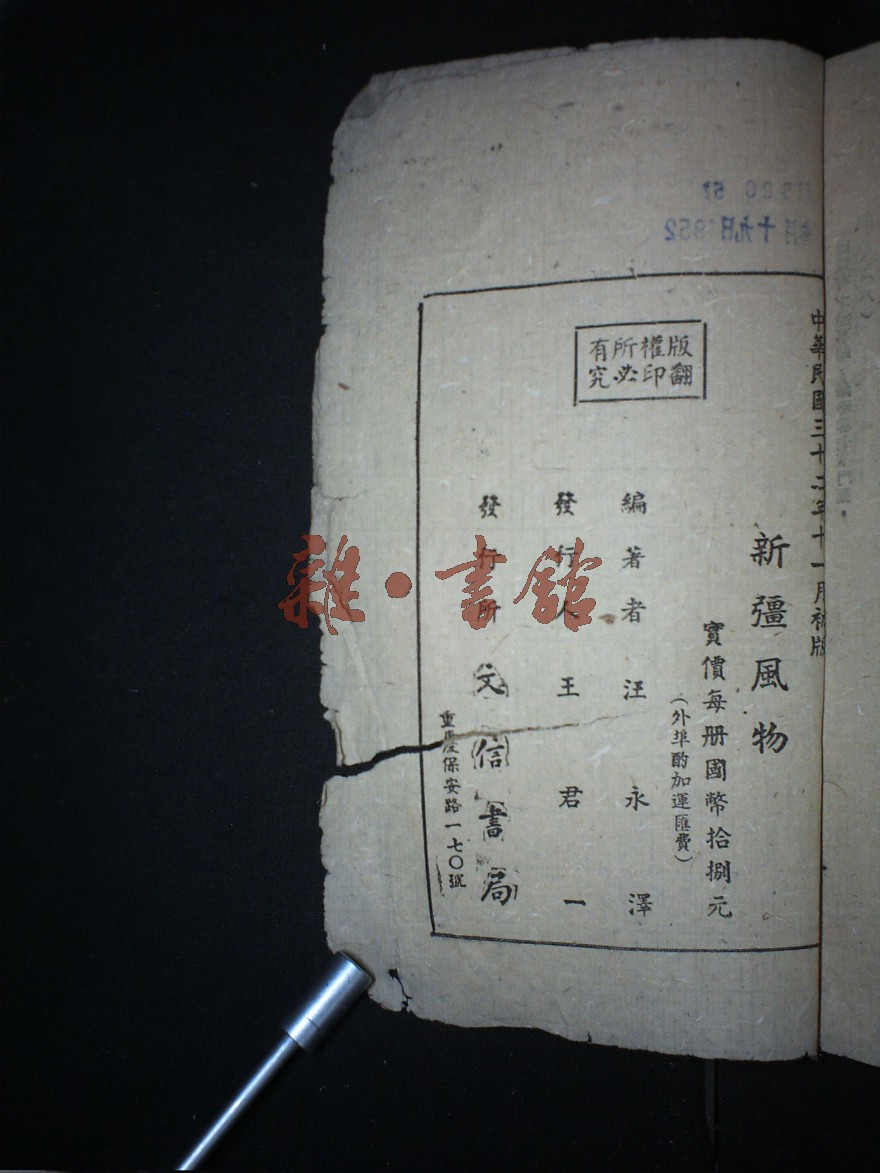 中華民國三十二年十一月初版
新疆風物
實價每册國幣拾捌元
(外埠酌加運匯費)
版權所有
翻印必究
編著者 汪永澤
發行人 王君一
發行所 文信書局
重慶保安路一七〇號
雜·書館